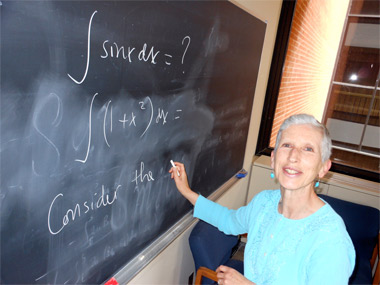 ∫ sinx dx = ?
∫ (1 + x²) dx =
Consider the